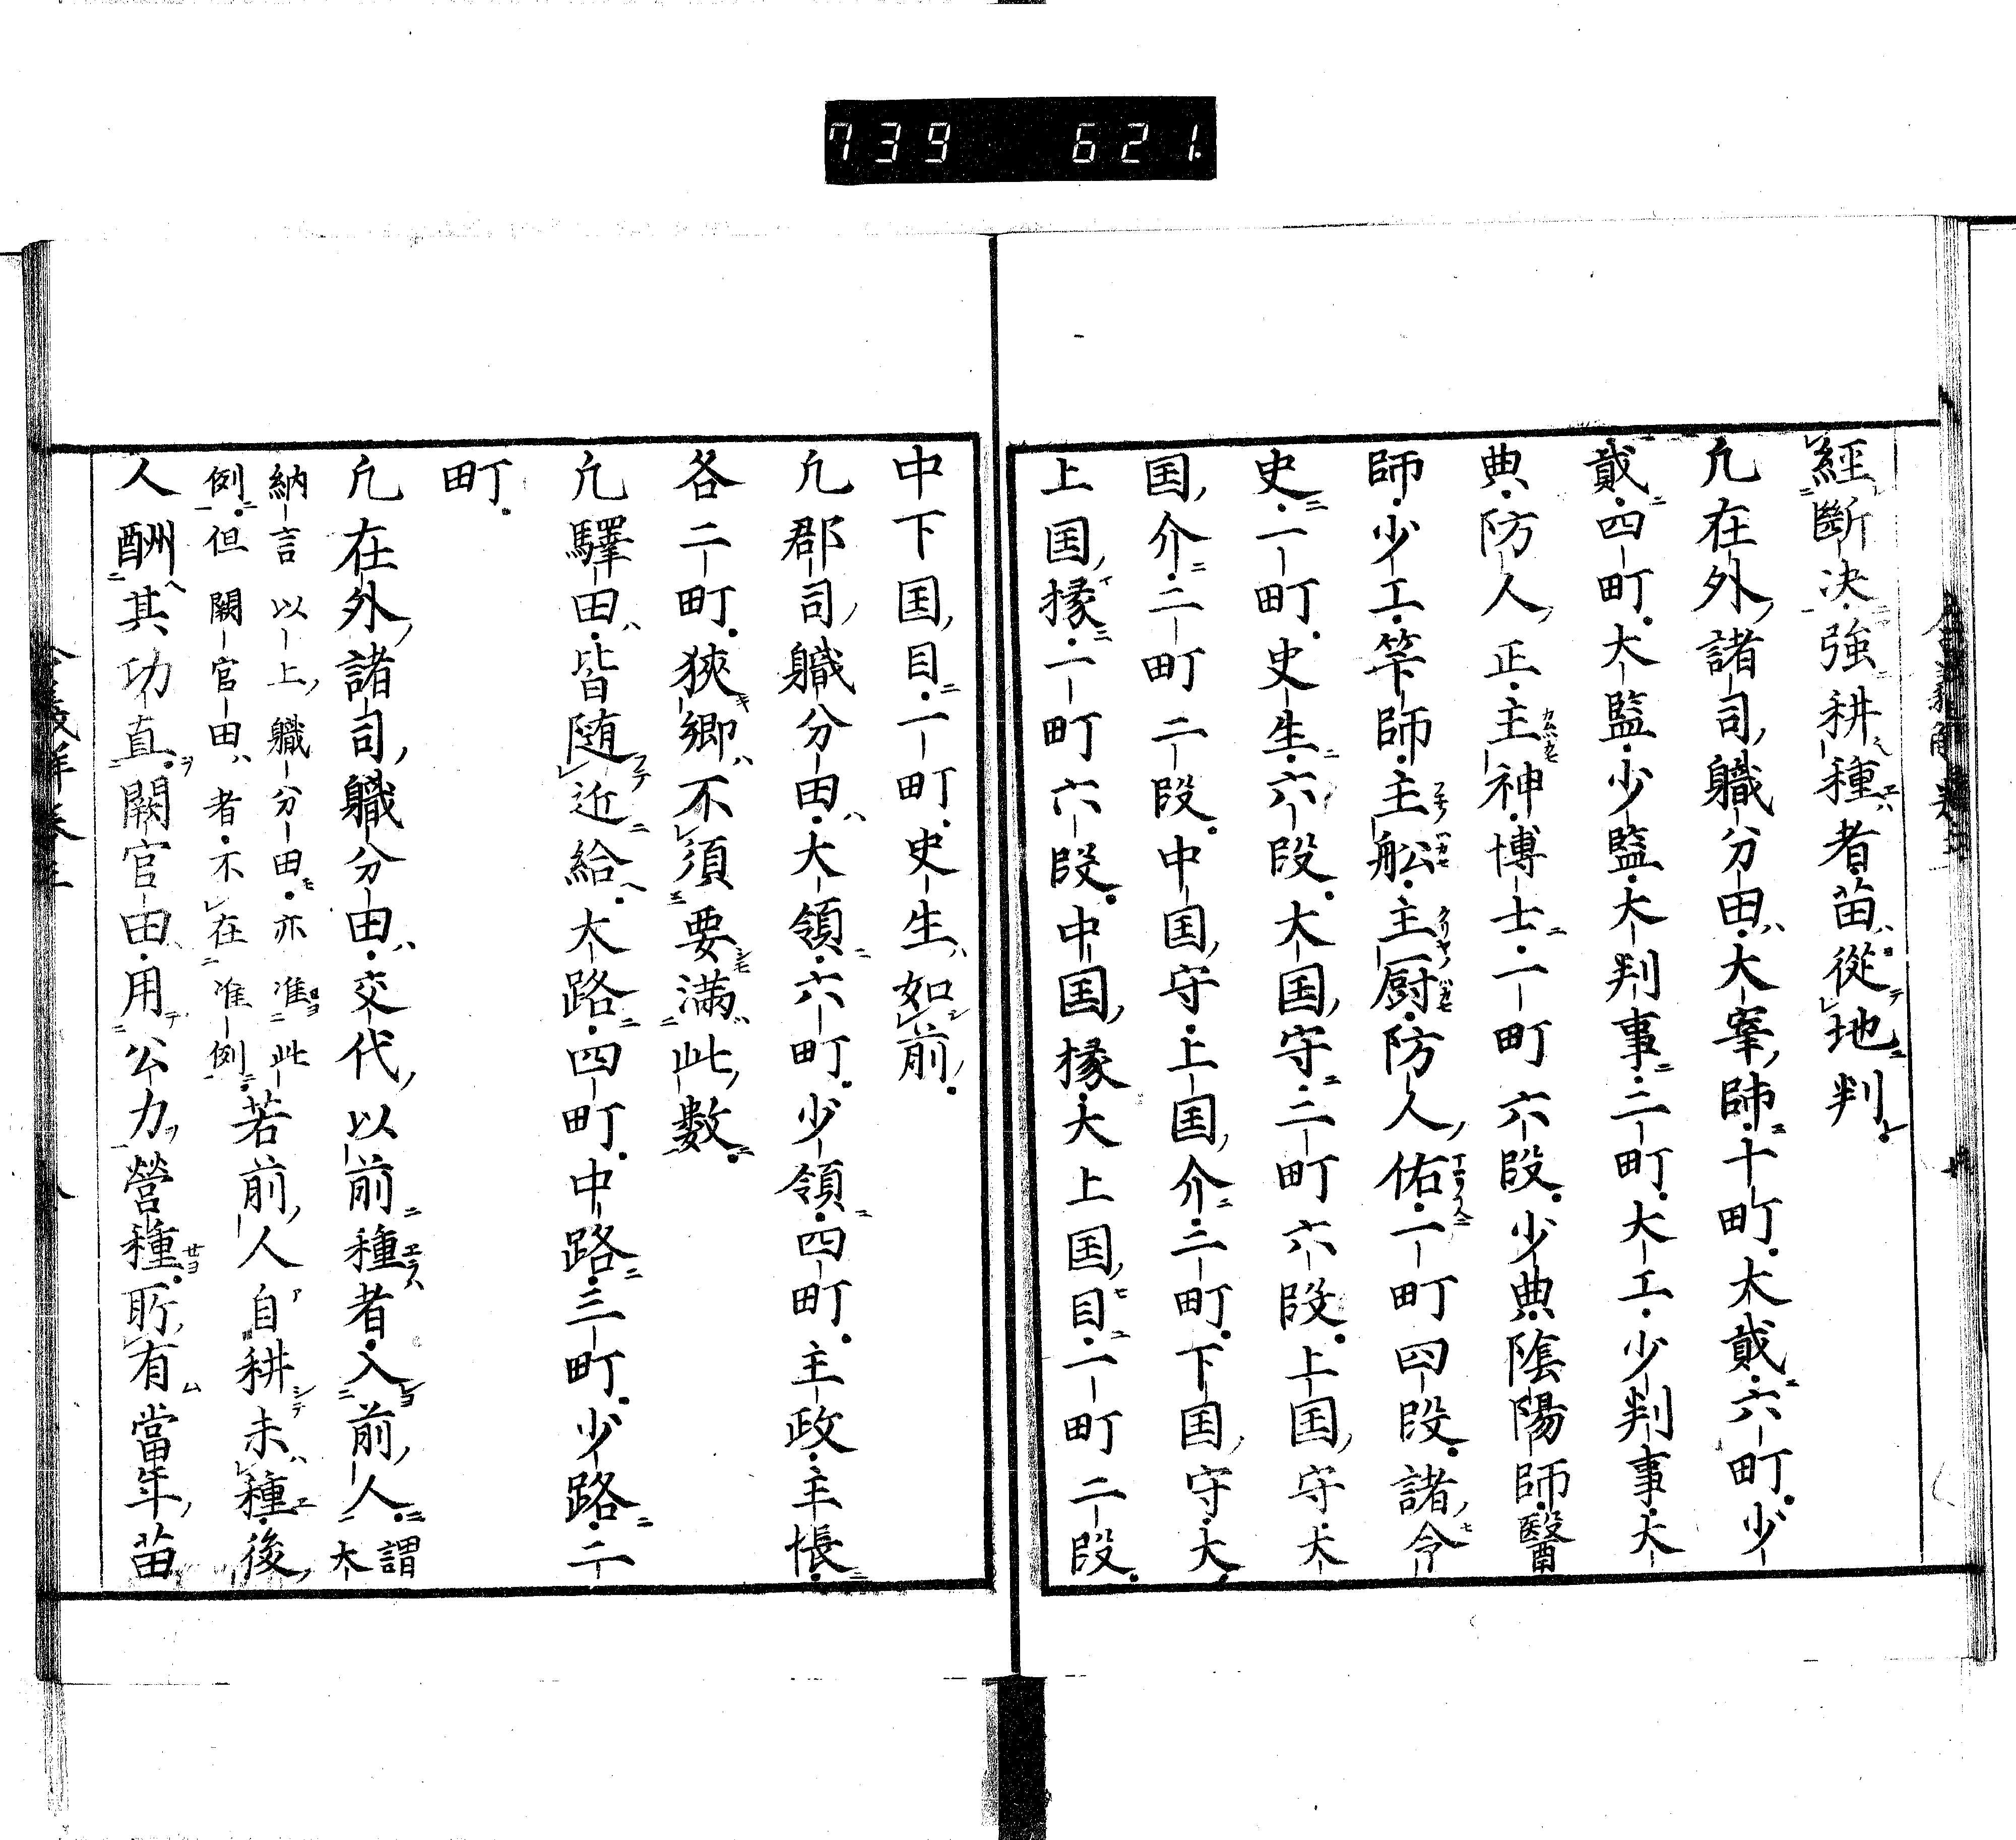 739 621.
經斷決強耕種者苗從地判
凢在外諸司職分田大宰師十町大貳六町少
貳四町大監少監大判事二町大工少判事大
典防人正主神博士一町六段少典陰陽師醫
師少工筭師主舩主厨防人佑一町四段諸令
史一町史生六段大国守二町六段上国守大
国介二町二段中国守上国介二町下国守大
上国掾一町六段中国掾大上国目一町二段
中下国目一町史生如前
凢郡司職分田大領六町少領四町主政主帳
各二町狹鄉不須要満此數
凢驛田皆随近給大路四町中路三町少路二
町
凢在外諸司職分田交代以前種者入前人謂大
納言以上職分田亦准此
例但闕官田者不在准例若前人自耕未種後
人酬其功直闕官田用公力營種所有當年苗